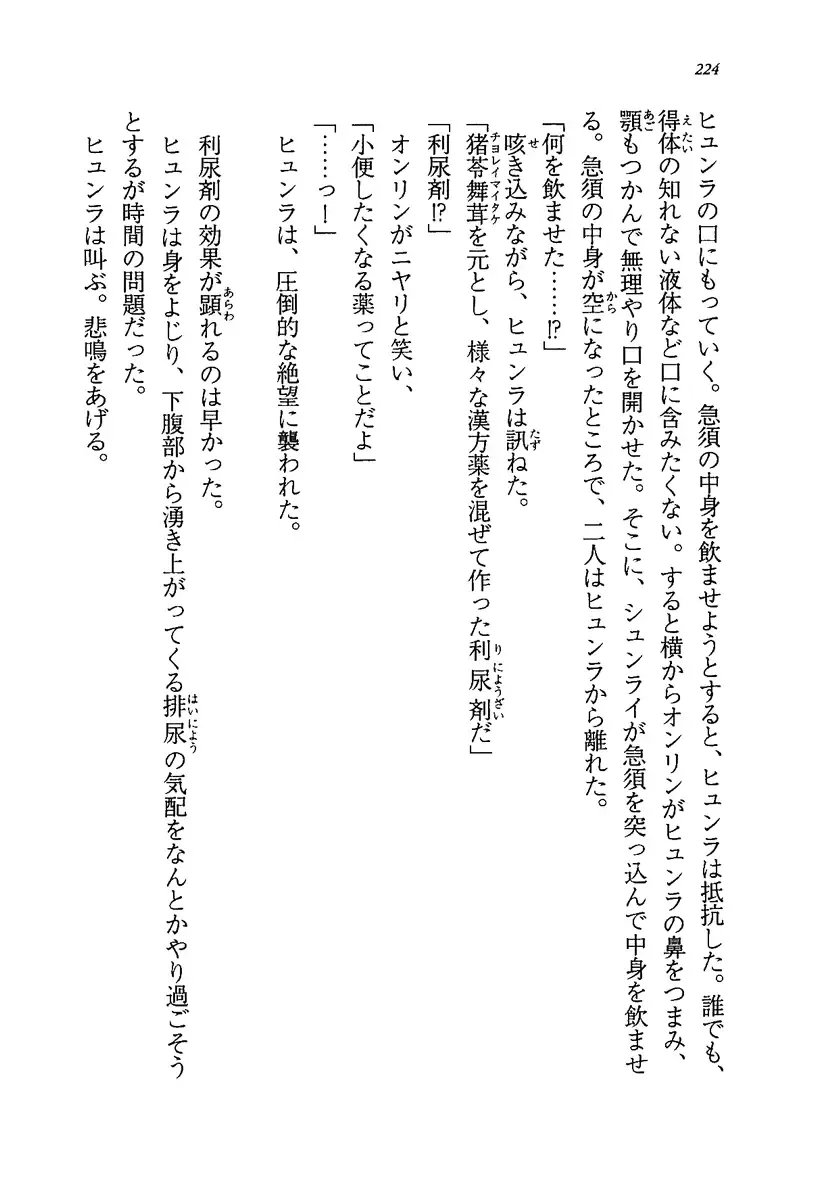 224
ヒュンラの口にもっていく。急須の中身を飲ませようとすると、ヒュンラは抵抗した。誰でも、
得体の知れない液体など口に含みたくない。すると横からオンリンがヒュンラの鼻をつまみ、
顎もつかんで無理やり口を開かせた。そこに、シュンライが急須を突っ込んで中身を飲ませ
る。急須の中身が空になったところで、二人はヒュンラから離れた。
「何を飲ませた……!?」
咳き込みながら、ヒュンラは訊ねた。
「猪苓舞茸を元とし、様々な漢方薬を混ぜて作った利尿剤だ」
「利尿剤!?」
オンリンがニヤリと笑い、
「小便したくなる薬ってことだよ」
「……っ！」
ヒュンラは、圧倒的な絶望に襲われた。
利尿剤の効果が顕れるのは早かった。
ヒュンラは身をよじり、下腹部から湧き上がってくる排尿の気配をなんとかやり過ごそう
とするが時間の問題だった。
ヒュンラは叫ぶ。悲鳴をあげる。